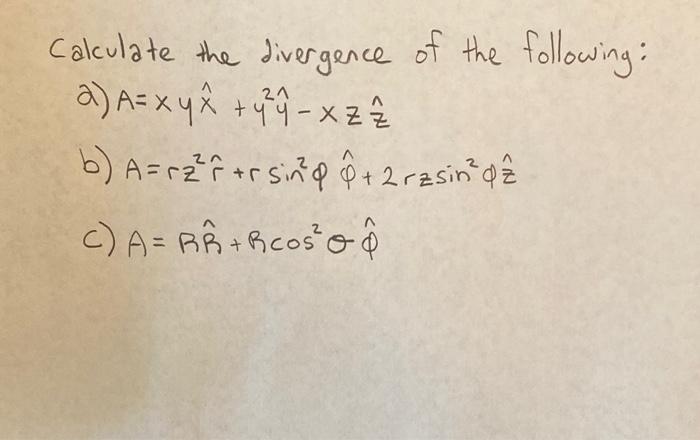 Calculate the divergence of the following:
a) A = x y x̂ + y² ŷ - x z ẑ
b) A = r z² r̂ + r sin² φ φ̂ + 2 r z sin² φ ẑ
c) A = R R̂ + R cos² θ φ̂